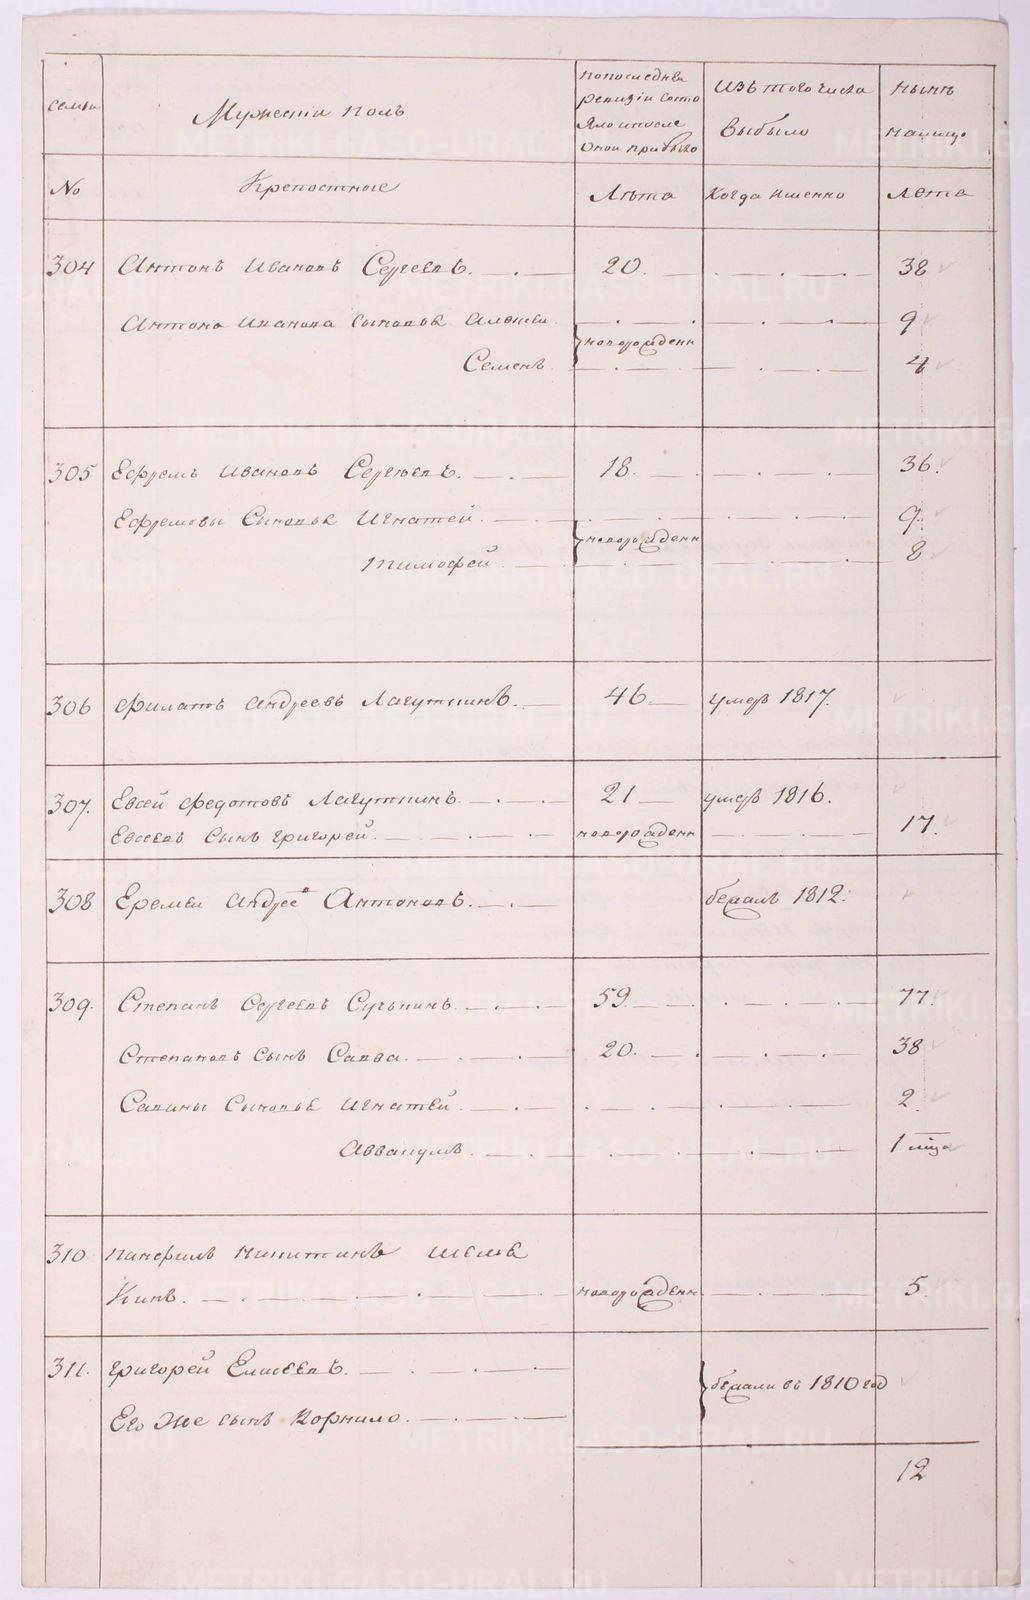 семьи
Мужескiй полъ
По последнѣй
ревизiи состо
яло и после
оной прибыло
Изъ того числа
выбыло
Нынѣ
на лицо
No
Крепостные
Лѣта
Когда именно
Лѣта
304 Антонъ Ивановъ Сергеевъ. 20. 38
Антона Иванова сыновья Алексеи 9
новорожден
Семенъ 4
305 Ефремъ Ивановъ Сергѣевъ. 18. 36.
Ефремовы Сыновья Игнатей. 9.
новорожден
Тимофей. 8
306 Филатъ Андреевъ Лагуткинъ. 46. умеръ 1817.
307. Евсей Федотовъ Лагуткинъ. 21 умеръ 1816.
Евсеевъ Сынъ Григорей. новорожден 17.
308 Еремеи Андрее въ Антоновъ. бежалъ 1812.
309. Степанъ Сергеевъ 59. 77.
Степановъ Сынъ Савва. 20. 38
Савины Сыновья Игнатей. 2.
Аввакумъ. 1 мца
310 Панфилъ Никитинъ Шемя
Кинъ. новорожден 5.
311. Григорей Елисеевъ. бежали въ 1810 год
Его же сынъ Корнило.
12
METRIKI.GASO-URAL.RU